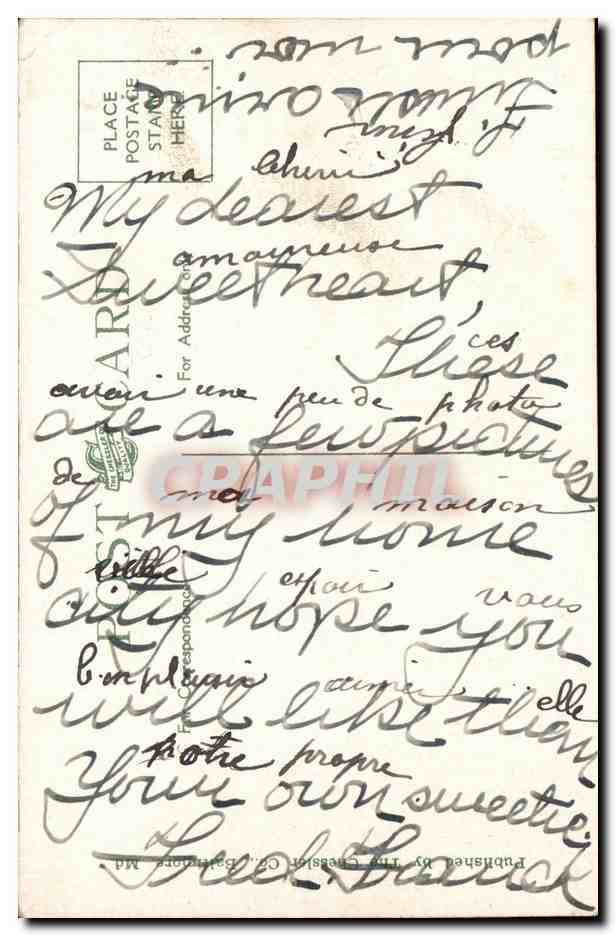 PLACE
POSTAGE
STAMP
HERE
pour moi
ma cherie
My dearest
amoureuse
Sweetheart,
ces
These
avoir une peu de photo
are a few pictures
de ma maison
of my home
ville espoir vous
city hope you
bonplaisir aimer elle
will like them
notre propre
Your own sweetie,
Fred. Franck
POST CARD
For Address only
For Correspondence
THE CHESSLER CO.
Published by The Chessler Co., Baltimore Md.
CRAPHIL